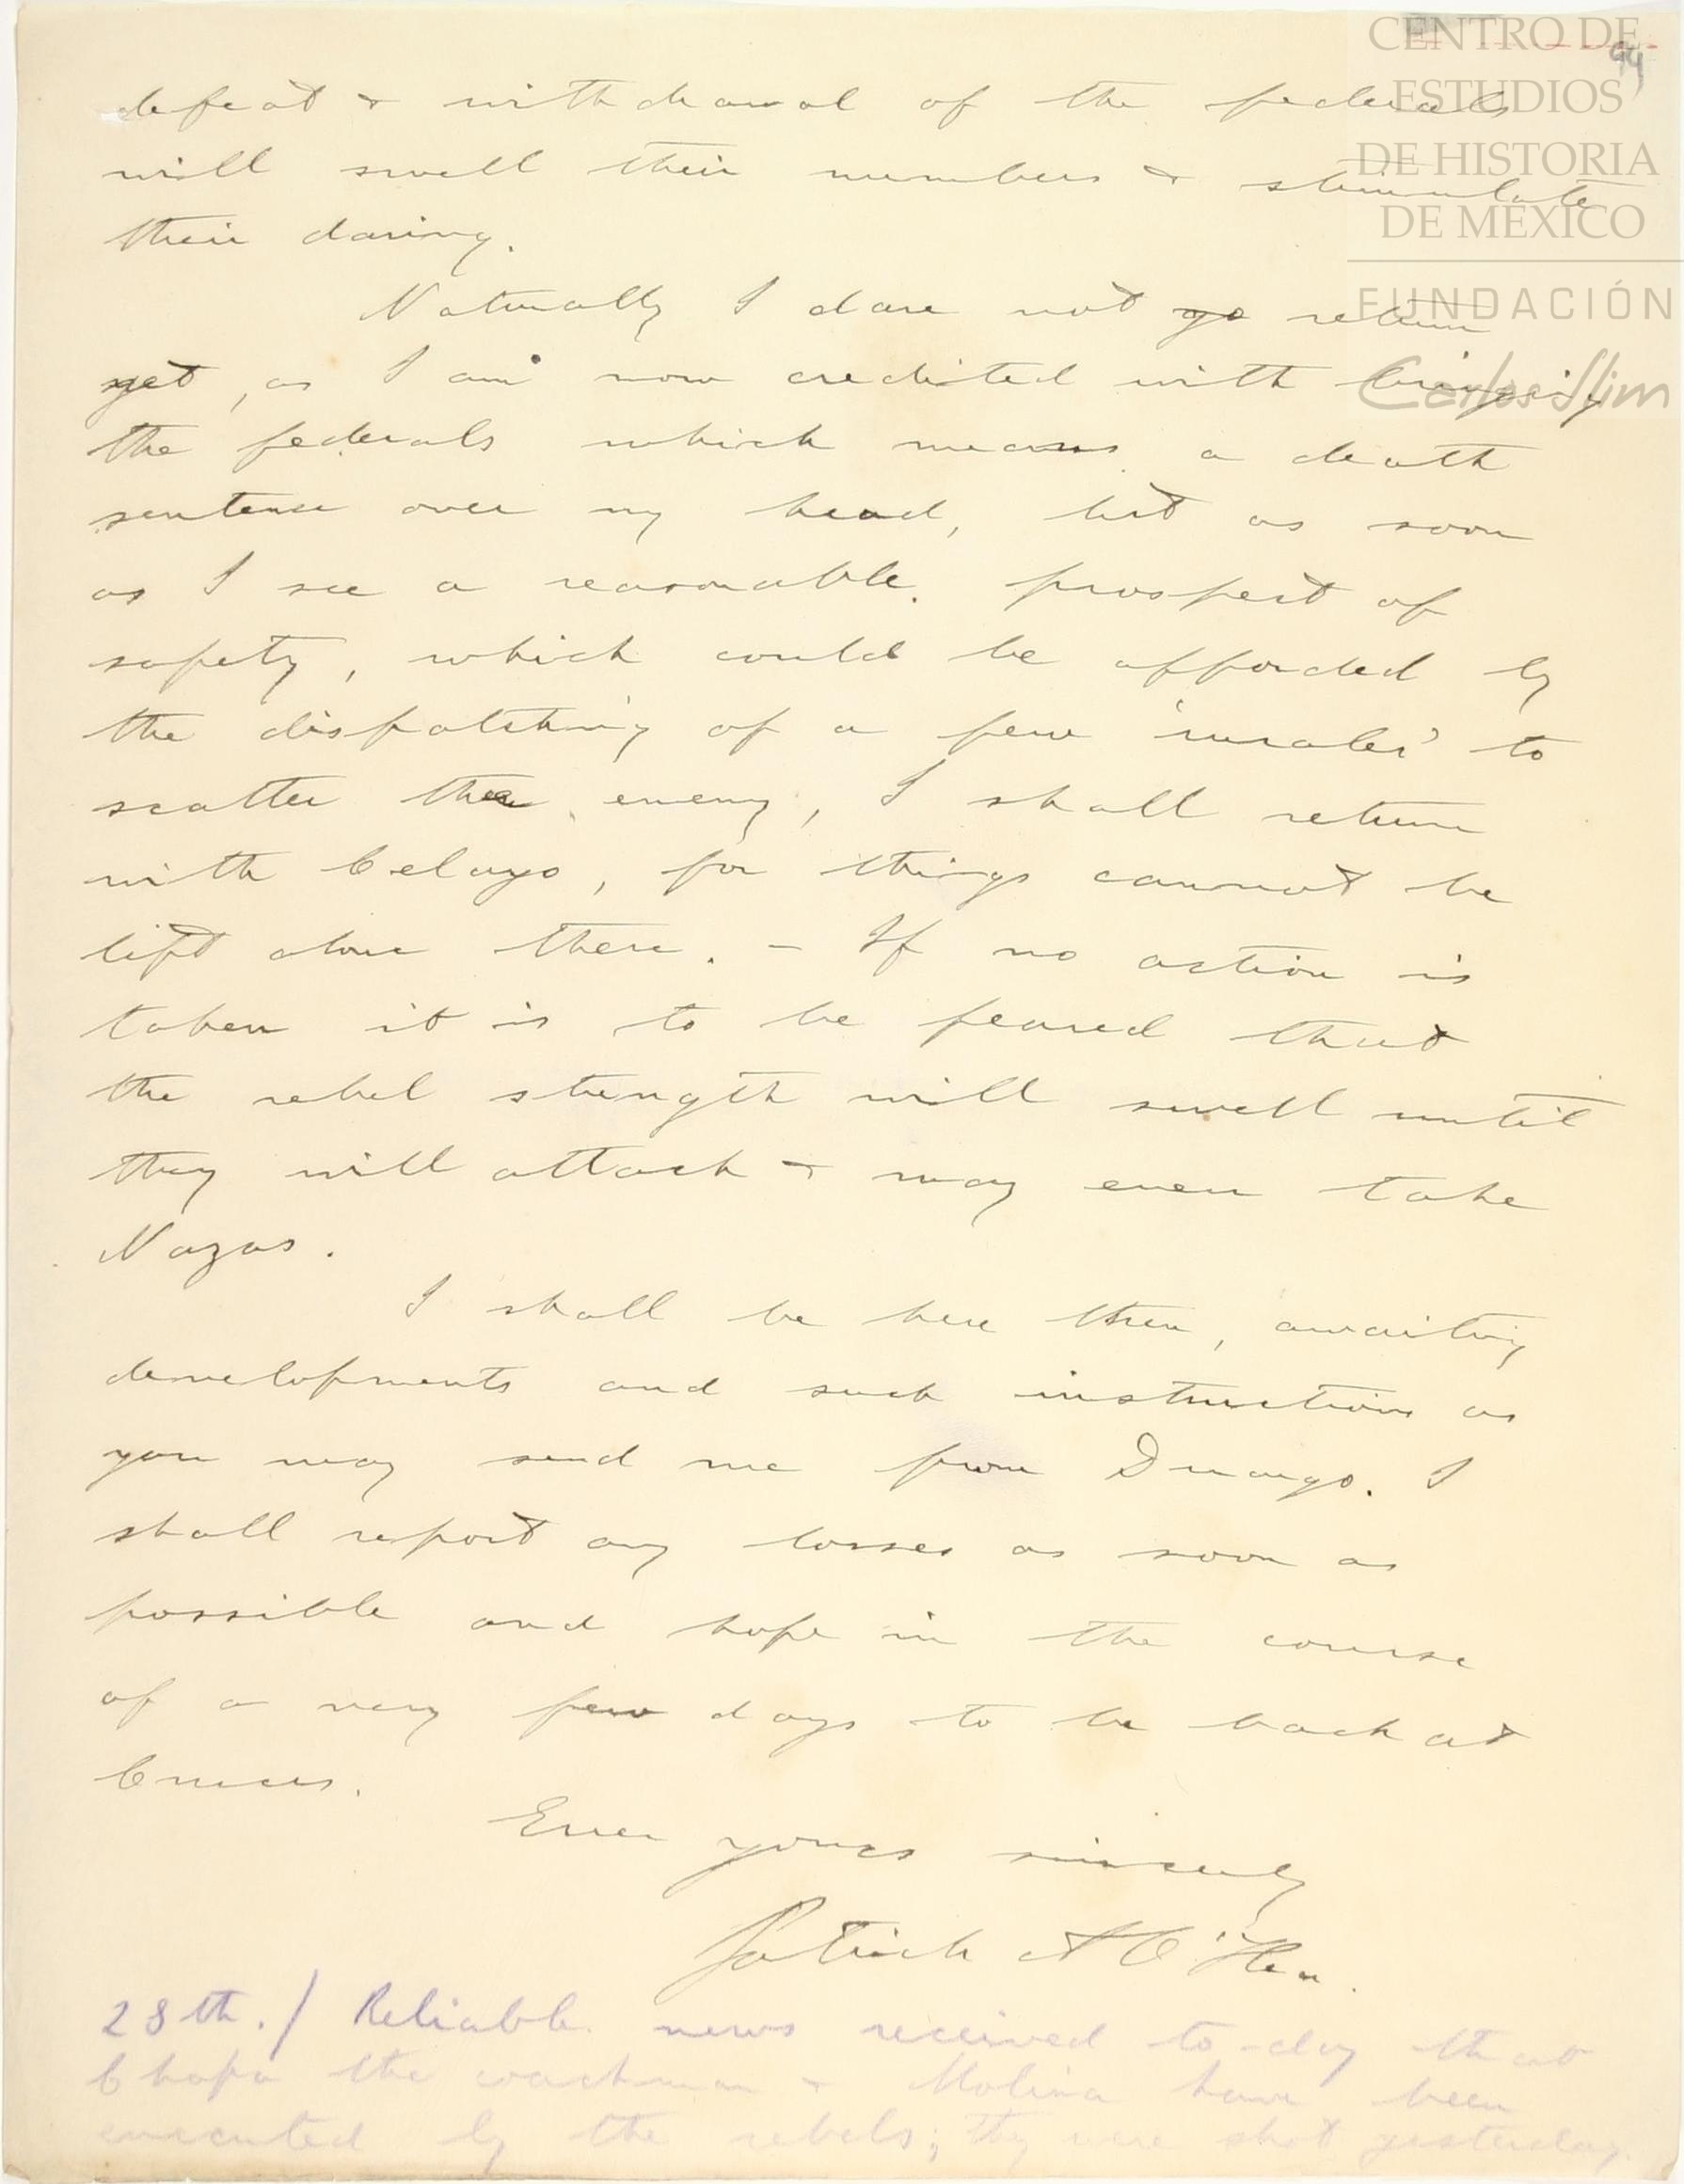 CENTRO DE
ESTUDIOS
DE HISTORIA
DE MÉXICO
FUNDACIÓN
Carlos Slim
94
defeat & withdrawal of the federals
will swell their numbers & stimulate
their daring.
Naturally I dare not go return
yet, as I am now credited with bringing
the federals which means a death
sentence over my head, but as soon
as I see a reasonable prospect of
safety, which could be afforded by
the dispatching of a few 'rurales' to
scatter the enemy, I shall return
with Celayo, for things cannot be
left alone there. - If no action is
taken it is to be feared that
the rebel strength will swell until
they will attack & may even take
Nazas.
I shall be here then, awaiting
developments and such instructions as
you may send me from Durango. I
shall report any losses as soon as
possible and hope in the course
of a very few days to be back at
Cruces.
Ever yours sincerely
Patrick A O'Hea.
28th./ Reliable news received to-day that
Chapa the coachman & Molina have been
executed by the rebels; they were shot yesterday.